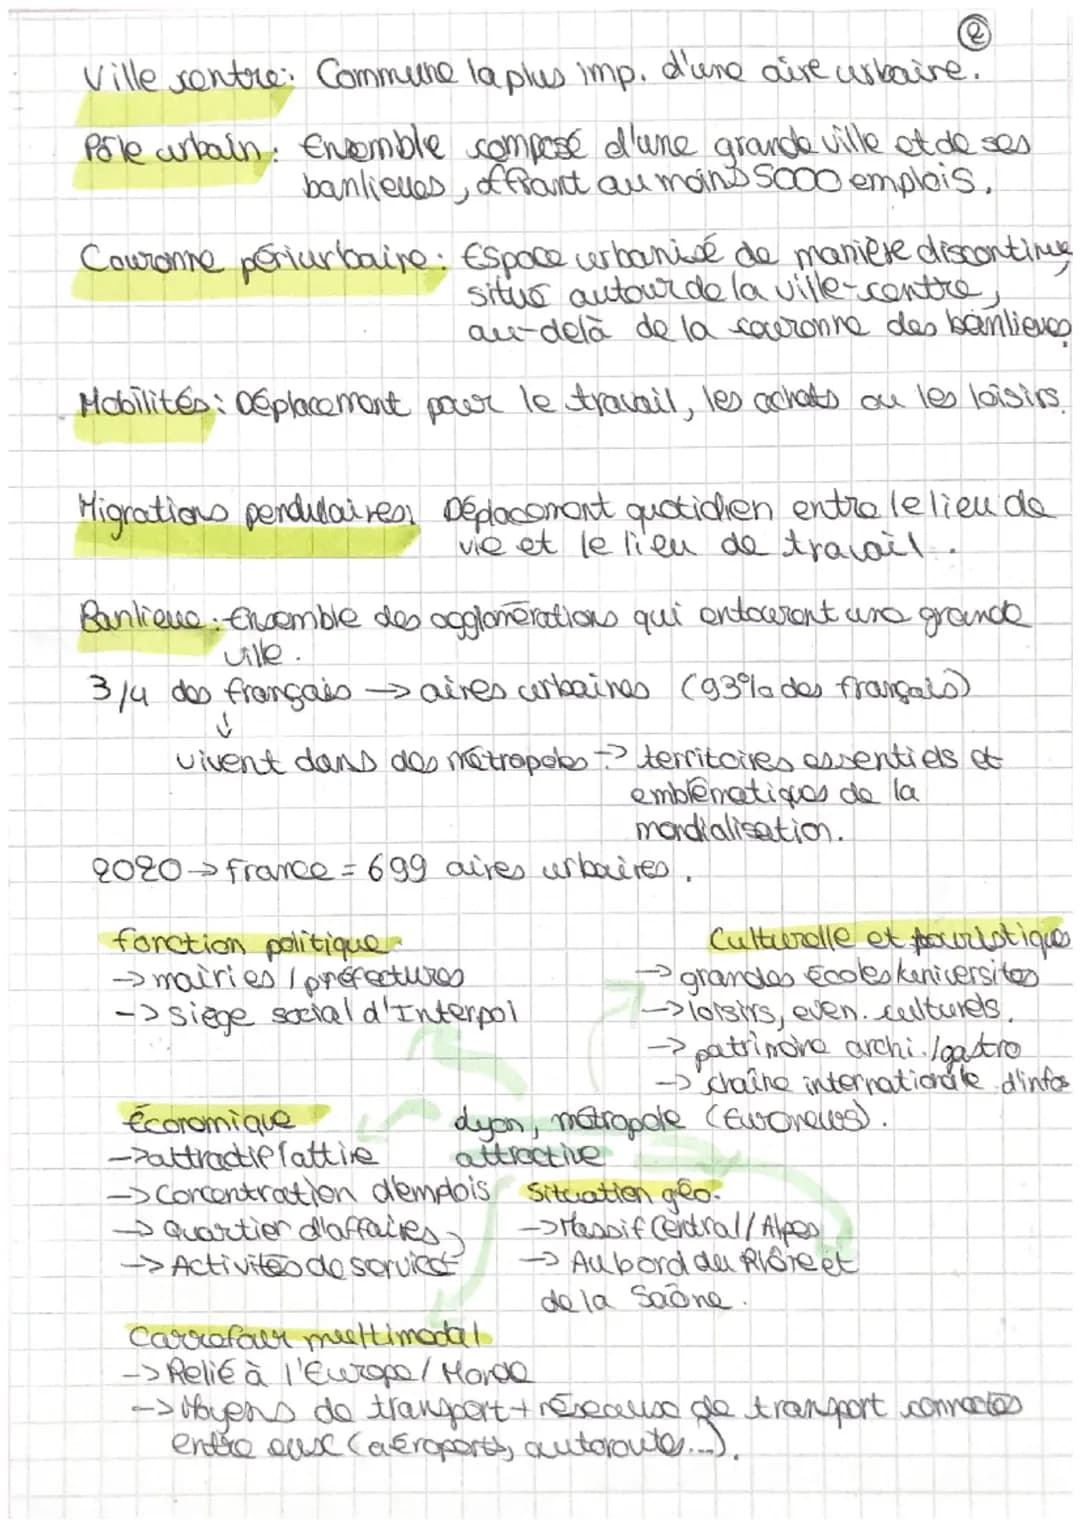 ②
Ville centre: Commune la plus imp. d'une aire urbaine.
Pôle urbain: Ensemble composé d'une grande ville et de ses
banlieues, offrant au moins 5000 emplois.
Couronne périurbaine: Espace urbanisé de manière discontinue,
situé autour de la ville-centre,
au-delà de la couronne des banlieues
Mobilités: Déplacement pour le travail, les achats ou les loisirs.
Migrations pendulaires: Déplacement quotidien entre le lieu de
vie et le lieu de travail.
Banlieue: Ensemble des agglomérations qui entourent une grande
ville.
3/4 des français -> aires urbaines (93% des français)
↓
vivent dans des métropoles -> territoires essentiels et
emblématiques de la
mondialisation.
2020 -> France = 699 aires urbaines.
fonction politique
-> mairies / préfectures
-> siège social d'Interpol
Culturelle et touristique
-> grandes écoles/universités
-> loisirs, even. culturels.
-> patrimoine archi./gastro
-> chaîne internationale d'infos
(Euronews).
Économique
-> attractif/attire
-> Concentration d'emplois
-> Quartier d'affaires
-> Activités de service
Lyon, métropole
attractive
Situation géo.
-> Massif Central / Alpes
-> Au bord du Rhône et
de la Saône.
Carrefour multimodal
-> Relié à l'Europe / Monde
-> Moyens de transport + réseaux de transport connectés
entre eux (aéroports, autoroutes...).